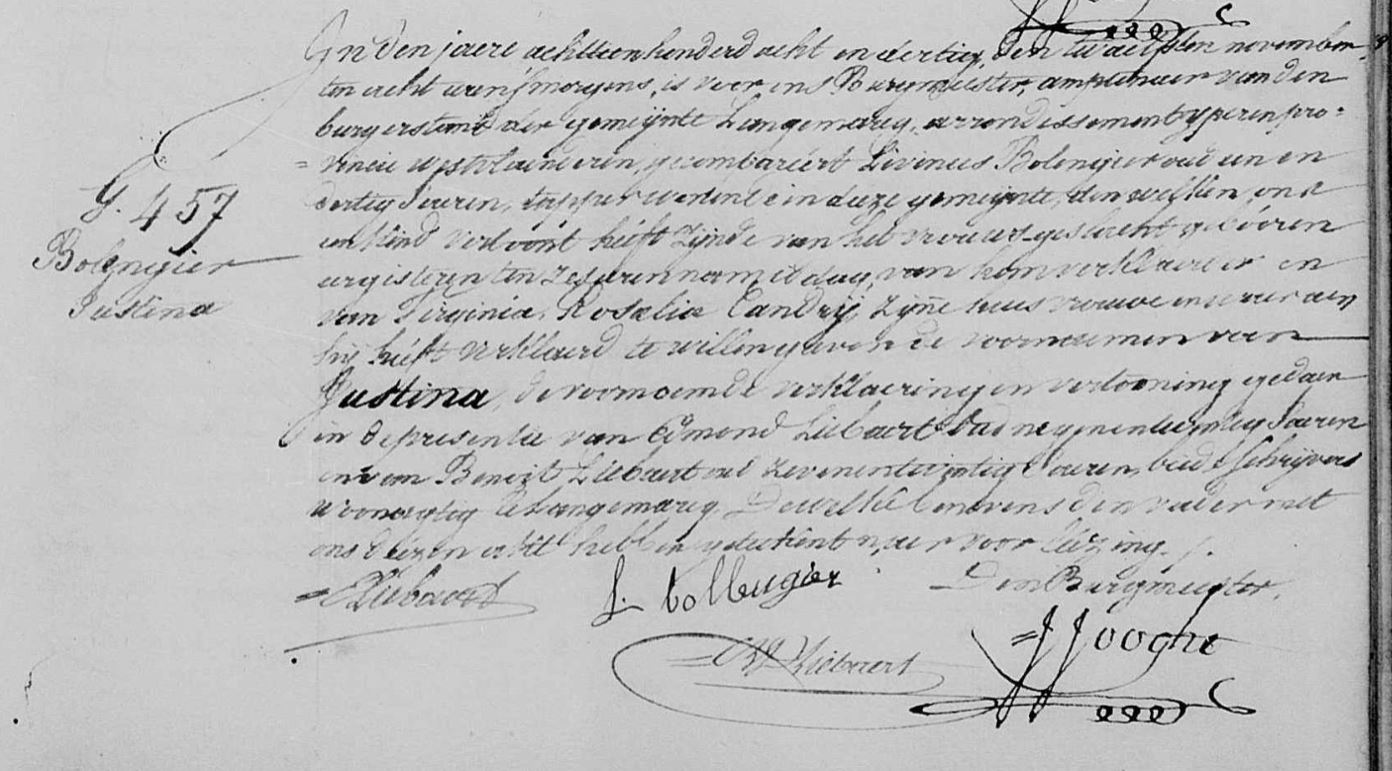 In den jaere achttienhonderd acht en dertig, den twaelfsten november
ten acht uren 's morgens, is voor ons Burgmeester, amptenaer van den
burgerstand der gemeynte Langemarcq, arrondissement yperen pro=
=vincie westvlaenderen, gecompareert Livinus Bolengier oud een en
dertig Jaeren, woonende in deze gemeynte, den welken ons
een kind vertoont heeft zynde van het vrouwe geslacht gebooren
eergisteren ten zes uren naermiddag, van hem verklaerder en
van Virginia, Rosalia Candry, zyne huis vrouwe en waer aen
G. 457
Bolengier
Justina
hy heeft verklaerd te willen geven de voornaemen van
Justina, de voornoemde verklaering en vertooning gedaen
in de presentie van Edmond Liebaert oud negenentwintig Jaeren
en van Benoit Liebaert oud zevenentwintig Jaeren, beide schryvers
woonagtig te Langemarcq. Dewelke benevens den vader met
ons dezen akt hebben geteekent naer voorleezing.
Liebaert
L. bolleugier
Den Burgmeester,
Liebaert
Hooghe